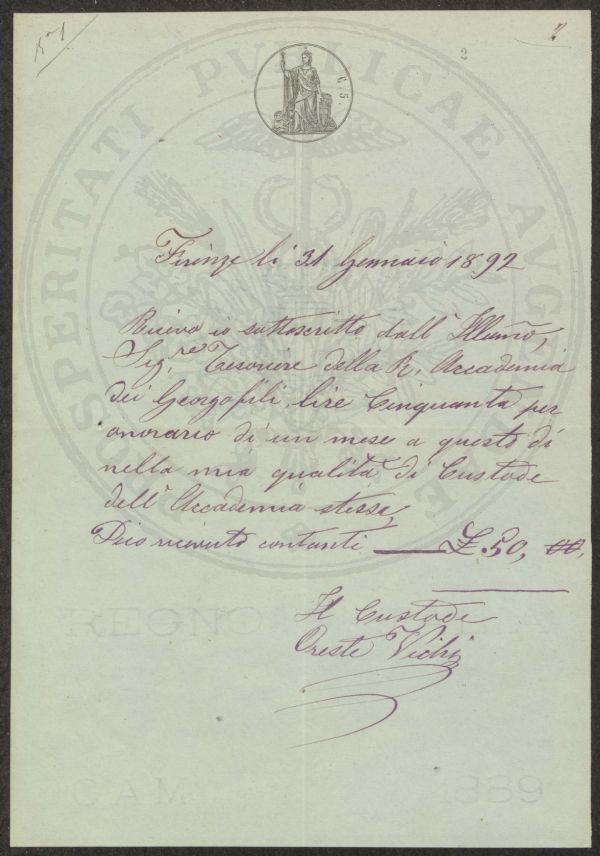 N° 1
2
2
C. 5.
PROSPERITATI PUBLICAE AUGE
Firenze li 31 Gennaio 1892
Ricevo io sottoscritto dall' Illmo,
Sig.re Tesoriere della R. Accademia
dei Georgofili lire Cinquanta per
onorario di un mese a questo dì
nella mia qualità di Custode
dell' Accademia stessa,
Dico ricevute contanti — £ 50, 00,
Il Custode
Oreste Vichi
REGNO
CAM 1889